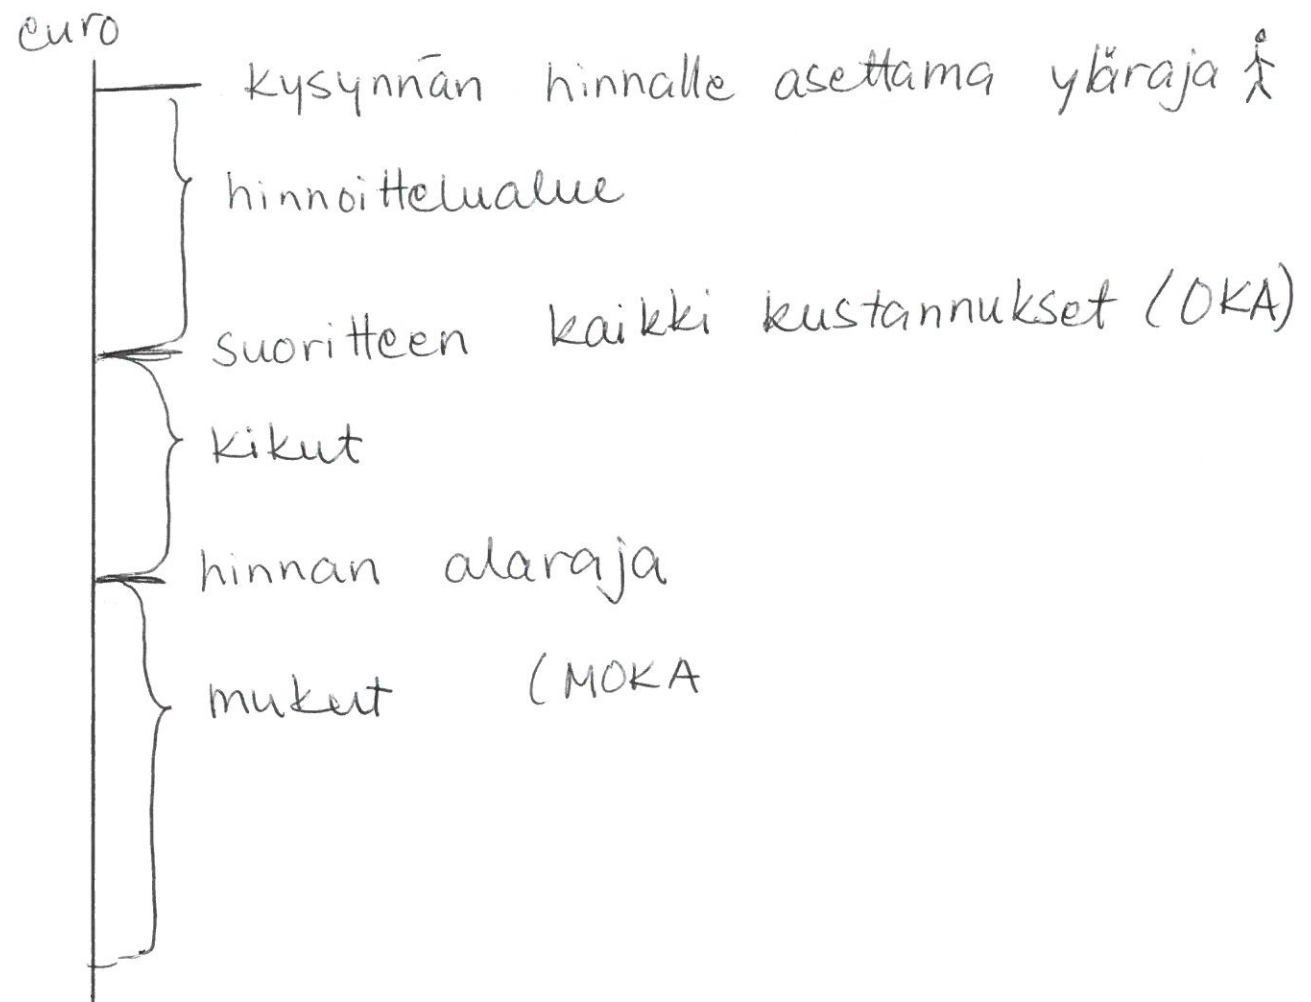 euro
kysynnän hinnalle asettama yläraja
hinnoittelualue
suoritteen kaikki kustannukset (OKA)
kikut
hinnan alaraja
mukut (MOKA